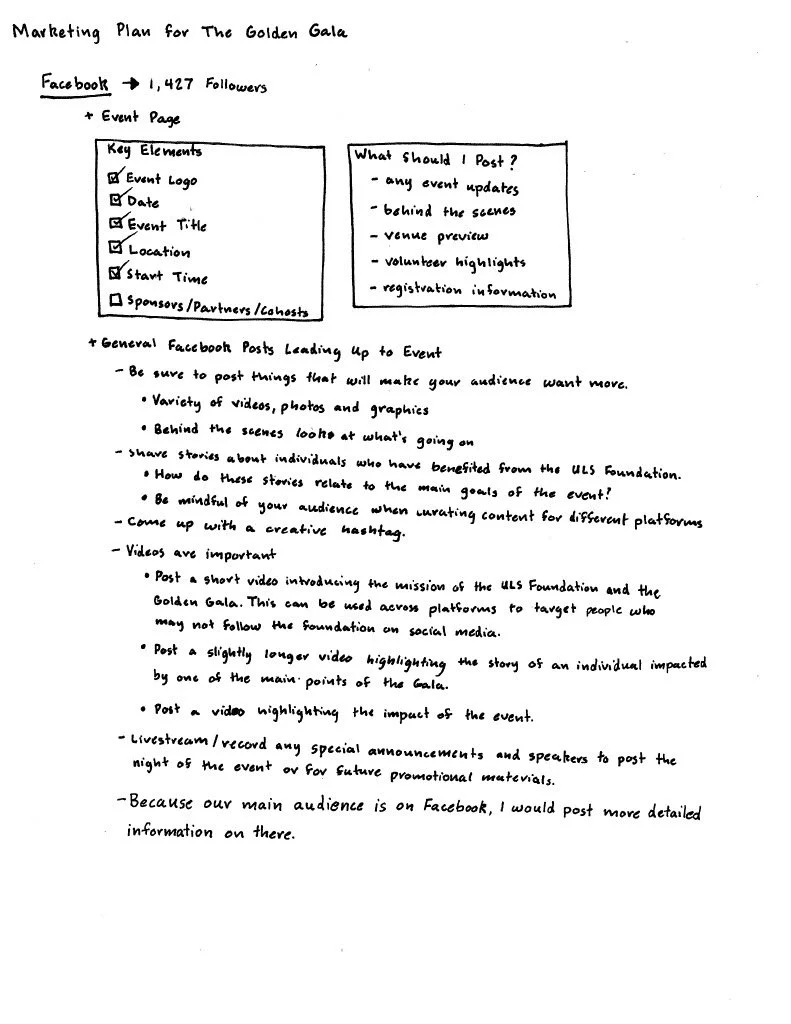 Marketing Plan for The Golden Gala
Facebook → 1,427 Followers
+ Event Page
Key Elements
☑ Event Logo
☑ Date
☑ Event Title
☑ Location
☑ Start Time
☐ Sponsors/Partners/Cohosts
What Should I Post?
- any event updates
- behind the scenes
- venue preview
- volunteer highlights
- registration information
+ General Facebook Posts Leading Up to Event
- Be sure to post things that will make your audience want more.
• Variety of videos, photos and graphics
• Behind the scenes looks at what's going on
- Share stories about individuals who have benefited from the ULS Foundation.
• How do these stories relate to the main goals of the event?
• Be mindful of your audience when curating content for different platforms
- Come up with a creative hashtag.
- Videos are important
• Post a short video introducing the mission of the ULS Foundation and the
Golden Gala. This can be used across platforms to target people who
may not follow the foundation on social media.
• Post a slightly longer video highlighting the story of an individual impacted
by one of the main points of the Gala.
• Post a video highlighting the impact of the event.
- Livestream/record any special announcements and speakers to post the
night of the event or for future promotional materials.
- Because our main audience is on Facebook, I would post more detailed
information on there.